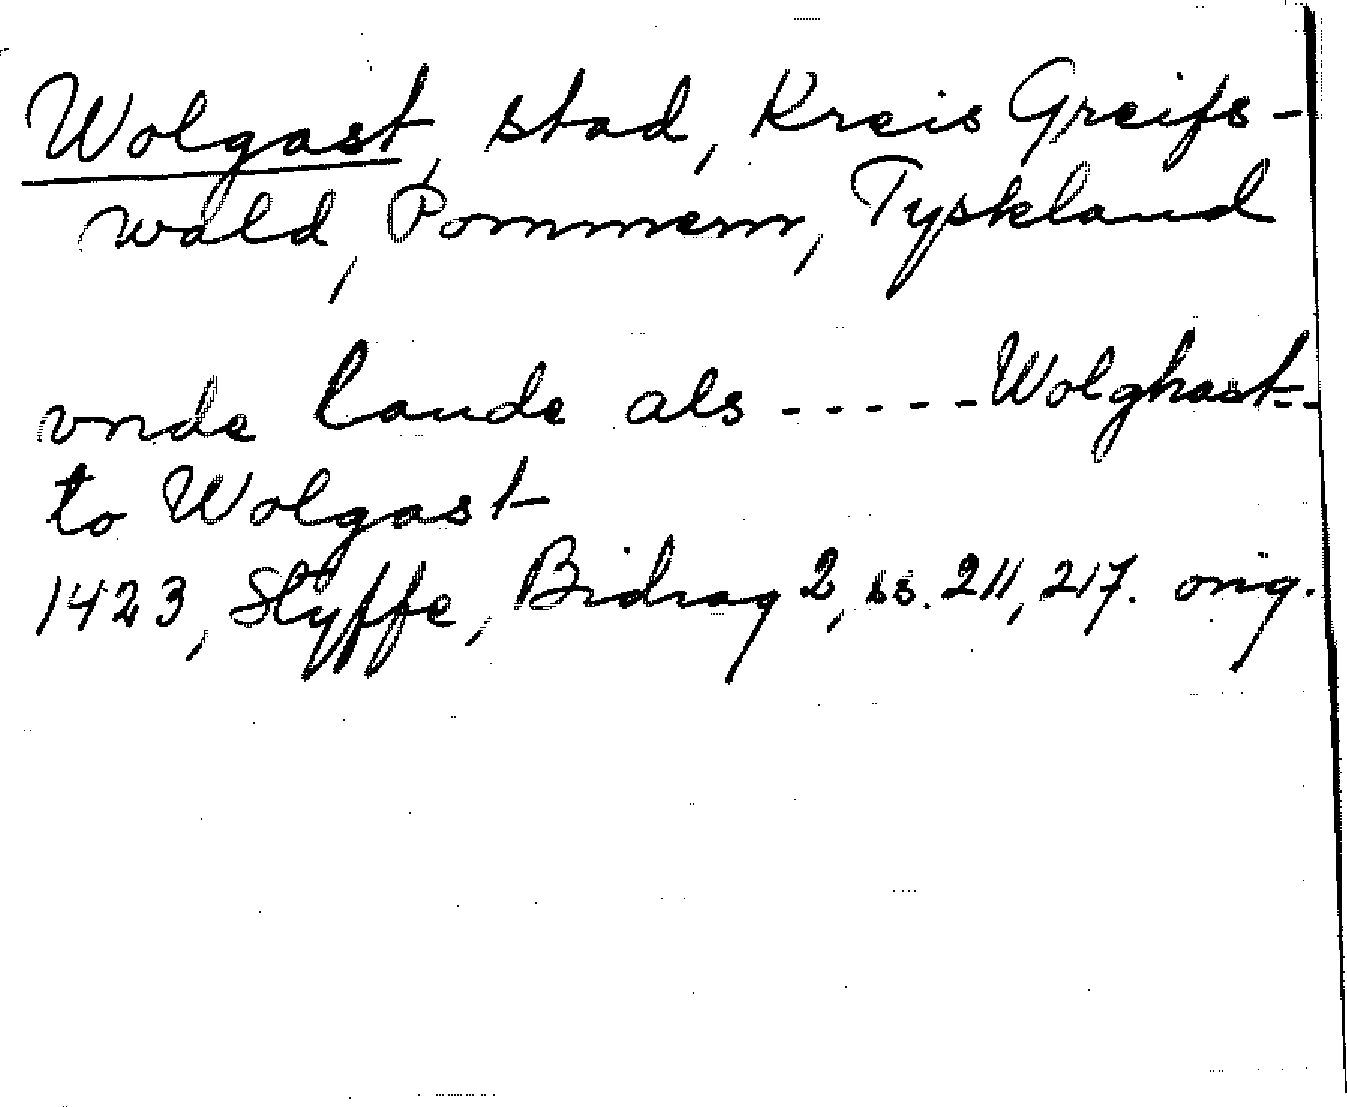 Wolgast, stad, Kreis Greifs-
wald, Pommern, Tyskland
vnde lande als ----- Wolghast--
to Wolgast
1423, Styffe, Bidrag 2, ss. 211, 217. orig.